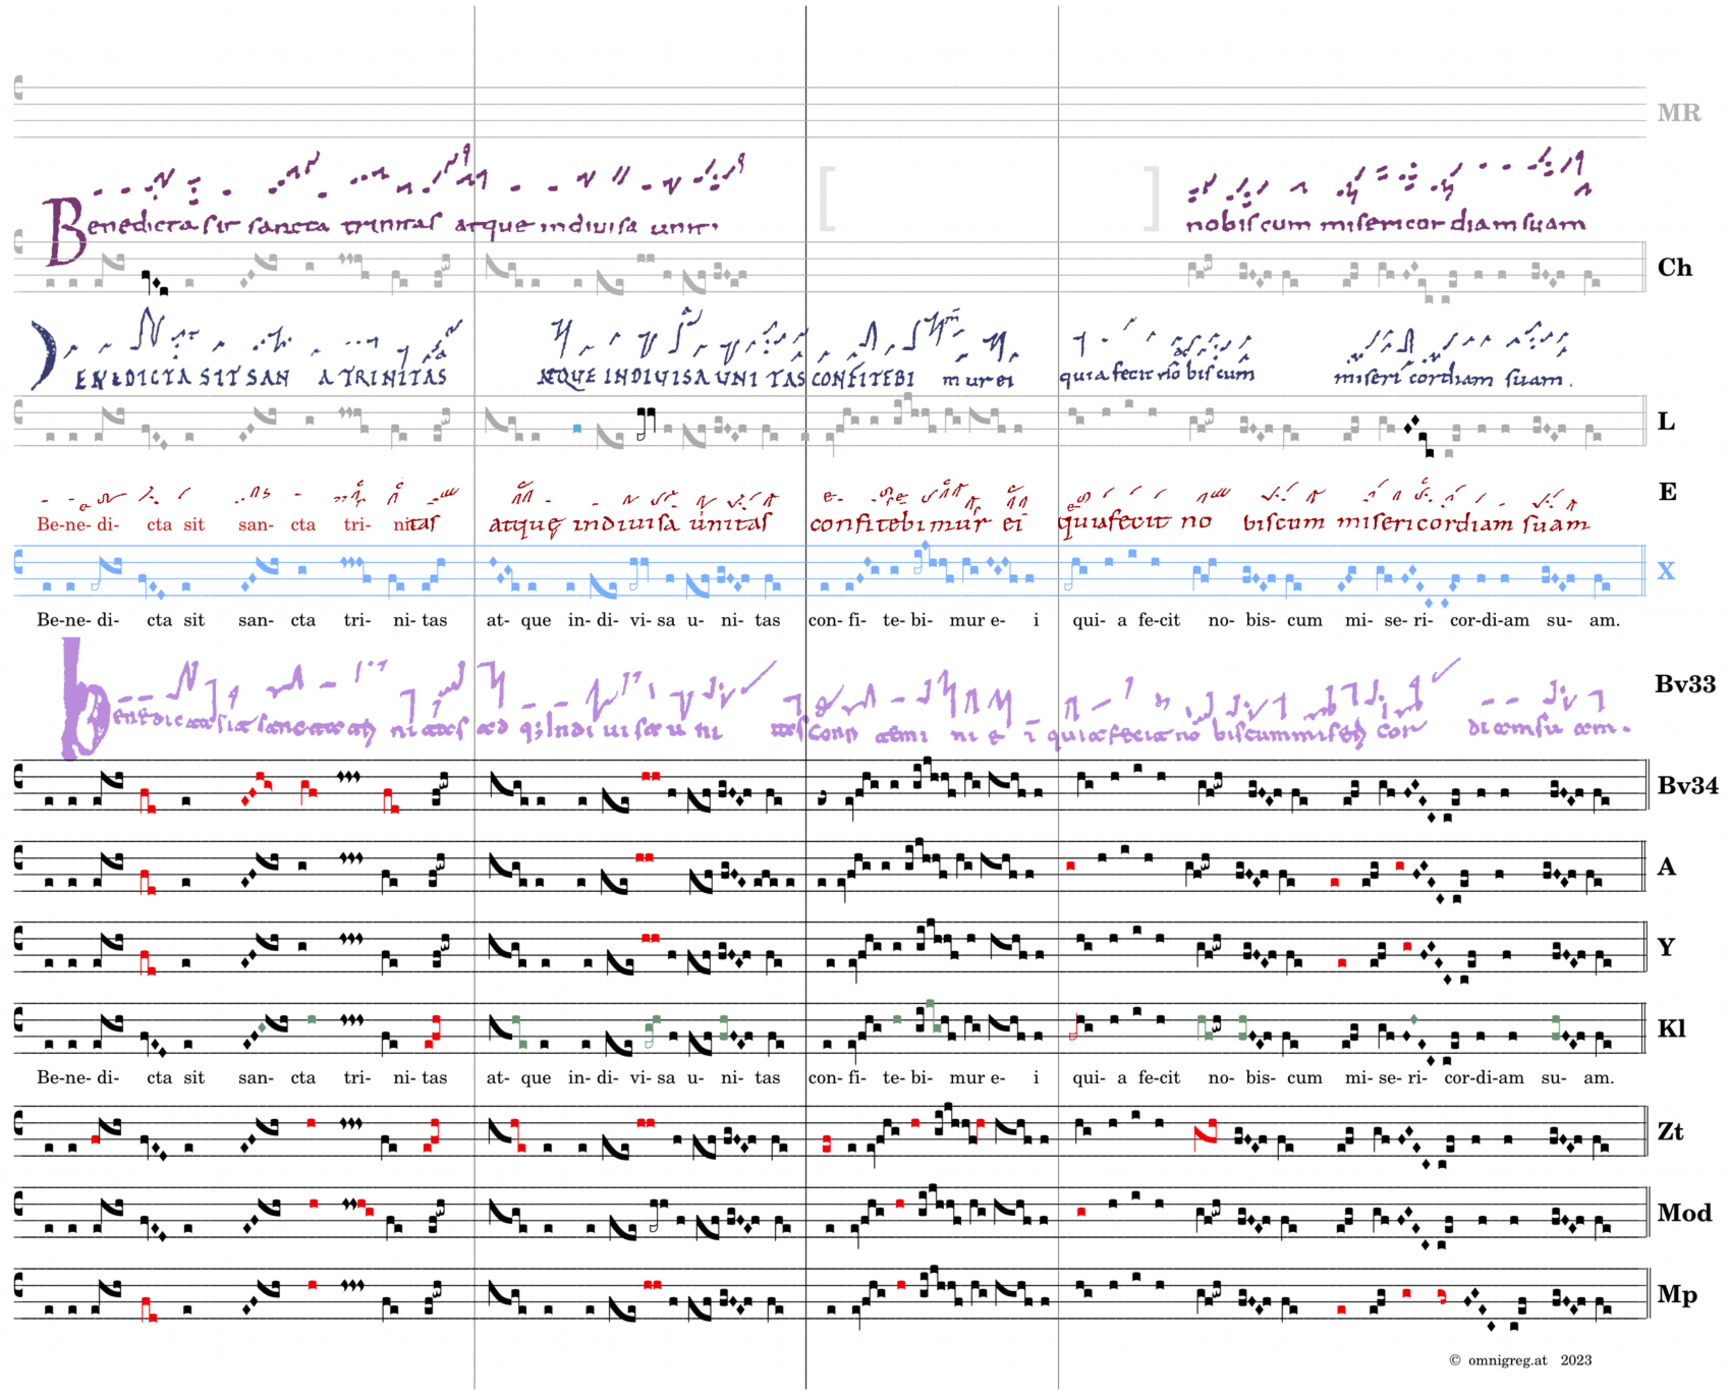 MR
Benedicta sit sancta trinitas atque indiuisa unit nobiscum misericordiam suam
Ch
ENEDICTA SIT SAN A TRINITAS ATQUE INDIUISA UNI TAS CONFITEBI mur ei quia fecit nobiscum misericordiam suam.
L
E
Be-ne- di- cta sit san- cta tri- nitas atque indiuisa unitas confitebimur ei quia fecit no biscum misericordiam suam
X
Be-ne- di- cta sit san- cta tri- ni- tas at- que in- di- vi- sa u- ni- tas con- fi- te- bi- mur e- i qui- a fe-cit no- bis- cum mi- se- ri- cor-di-am su- am.
Bv33
Bv34
A
Y
Kl
Be-ne- di- cta sit san- cta tri- ni- tas at- que in- di- vi- sa u- ni- tas con- fi- te- bi- mur e- i qui- a fe-cit no- bis- cum mi- se- ri- cor-di-am su- am.
Zt
Mod
Mp
© omnigreg.at 2023